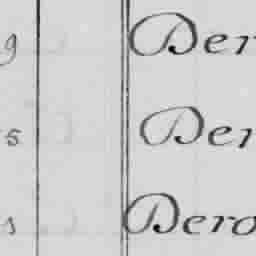 9 Der
5 Der
s Dero